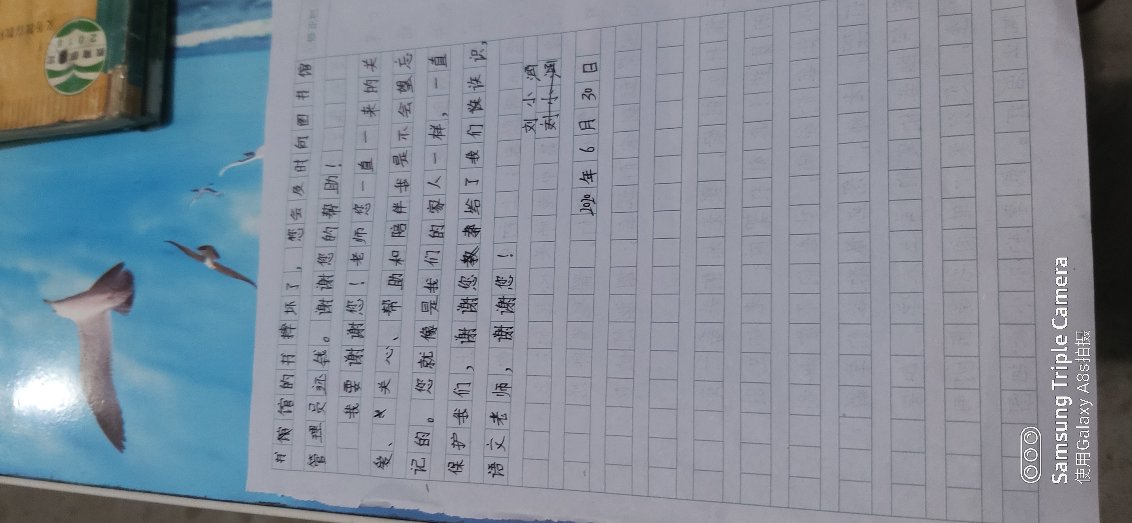 书馆馆的书摔坏了，您会及时向图书馆
管理员还钱。谢谢您的帮助！
我要谢谢您！老师您一直一来的关
爱、关心、帮助和陪伴我是不会忘
记的。您就像是我们的家人一样，一直
保护我们，谢谢您给了我们知识，
语文老师，谢谢您！
刘小涵
刘小涵
2020年6月30日
Samsung Triple Camera
使用Galaxy A8s拍摄